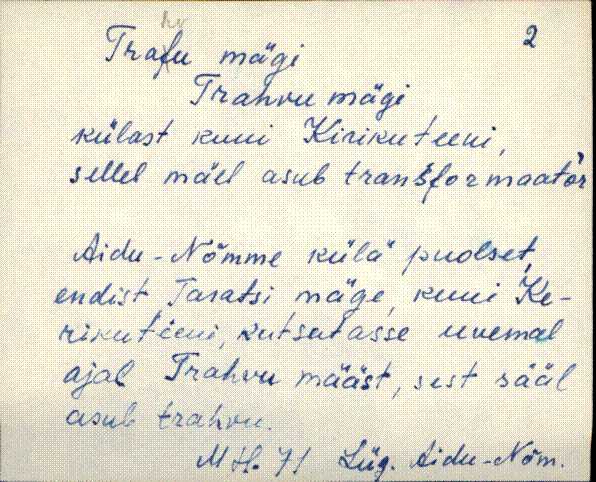 hv
Trafu mägi 2
Trahvu mägi
külast kuni Kirikuteeni,
sellel mäel asub transformaator
Aidu-Nõmme külä puolset,
endist Taratsi mäge, kuni Ke-
rikuteeni, kutsutasse uvemal
ajal Trahvu määst, sest sääl
asub trahvu.
MH. 71 Lüg. Aidu-Nõm.